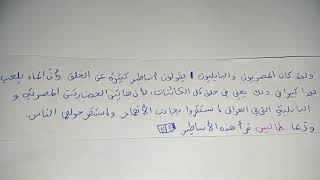 ولقد كان المصريون والبابليون يقولون أساطير كثيرة عن الخلق وأن الماء يلعب
دورا كبيرا في ذلك يعني في خلق كل الكائنات، لأن هاتين الحضارتين المصرية و
البابلية التي في العراق استقروا بجانب الأنهار واستقر حولها الناس.
وربما طاليس قرأ هذه الأساطير